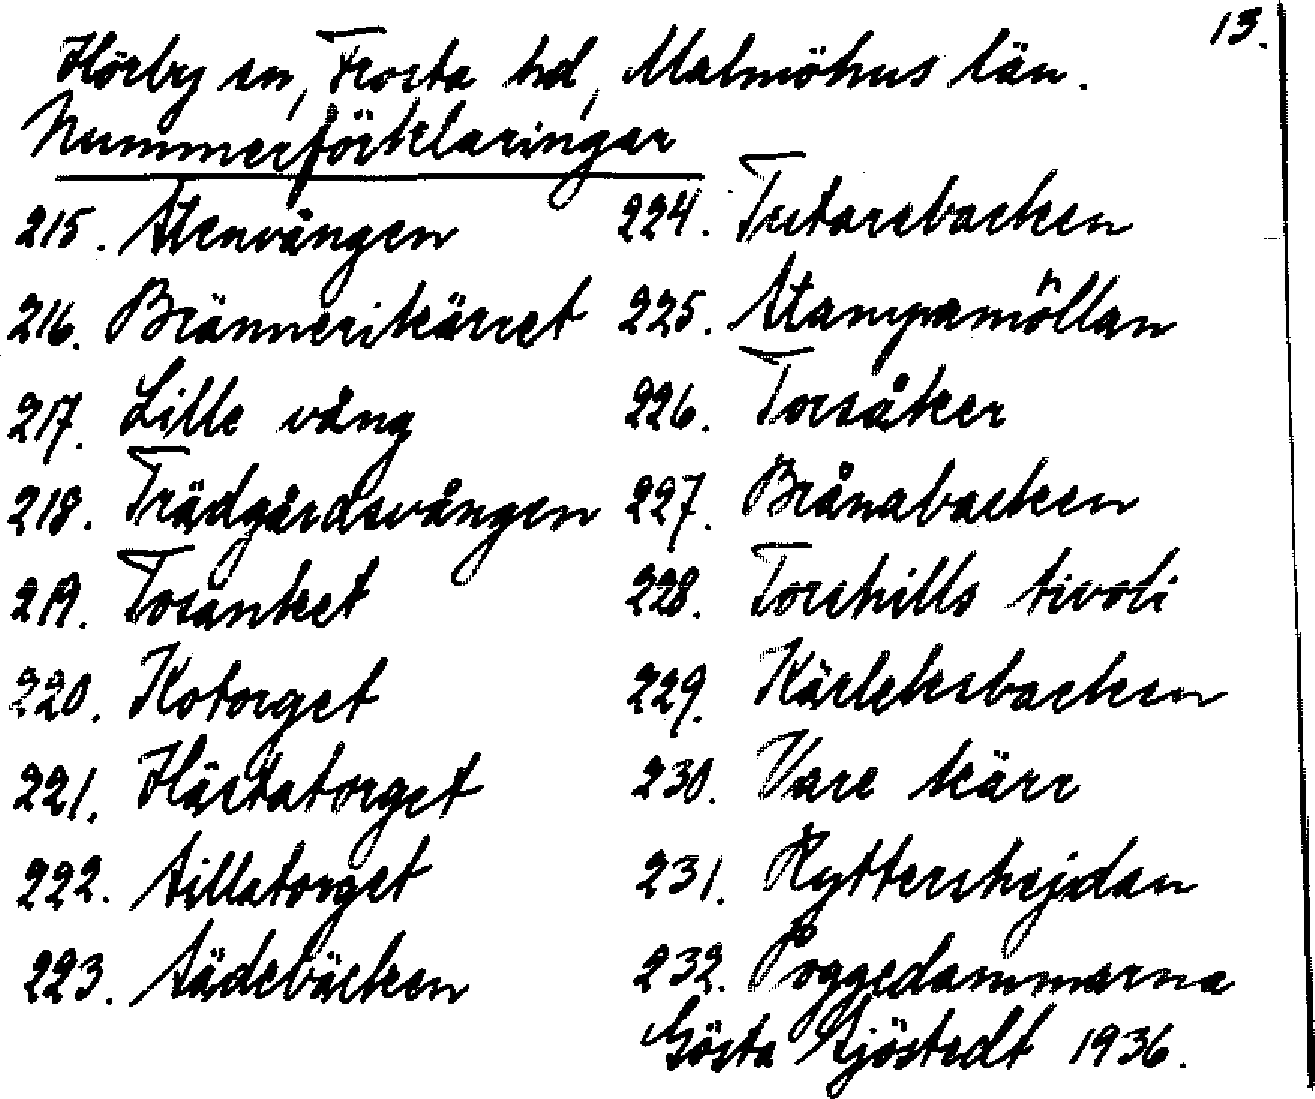 13.
Hörby sn, Frosta hd, Malmöhus län.
Nummerförklaringar
215. Stenvången
216. Brännerikärret
217. Lille vång
218. Trädgårdsvången
219. Torsnket
220. Kotorget
221. Hästatorget
222. Sillatorget
223. Sädebäcken
224. Tutarebacken
225. Stampamöllan
226. Torsåker
227. Brånabacken
228. Torshills tivoli
229. Kärleksbacken
230. Vare kärr
231. Ryttershejdan
232. Poggedammarna
Gösta Sjöstedt 1936.